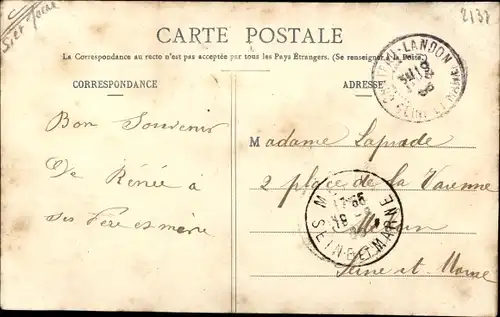 2137
CARTE POSTALE
La Correspondance au recto n'est pas acceptée par tous les Pays Étrangers. (Se renseigner à la Poste).
CORRESPONDANCE
ADRESSE
-LANDON
SEINE ET MARNE
Bon Souvenir
De Rénée à
ses Père et mère
Madame Laprade
2 place de la Varenne
Melun
Seine et Marne
SEINE-ET-MARNE